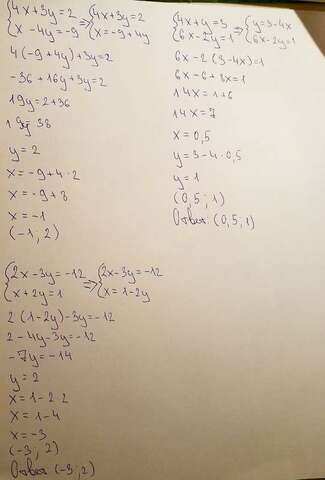 {4x+3y=2 => {4x+3y=2
{x-4y=-9 {x=-9+4y
4(-9+4y)+3y=2
-36+16y+3y=2
19y=2+36
19y 38
y=2
x=-9+4·2
x=-9+8
x=-1
(-1; 2)
{4x+y=3 => {y=3-4x
{6x-2y=1 {6x-2y=1
6x-2(3-4x)=1
6x-6+8x=1
14x=1+6
14x=7
x=0,5
y=3-4·0,5
y=1
(0,5; 1)
Ответ: (0,5; 1)
{2x-3y=-12 => {2x-3y=-12
{x+2y=1 {x=1-2y
2(1-2y)-3y=-12
2-4y-3y=-12
-7y=-14
y=2
x=1-2·2
x=1-4
x=-3
(-3; 2)
Ответ (-3; 2)